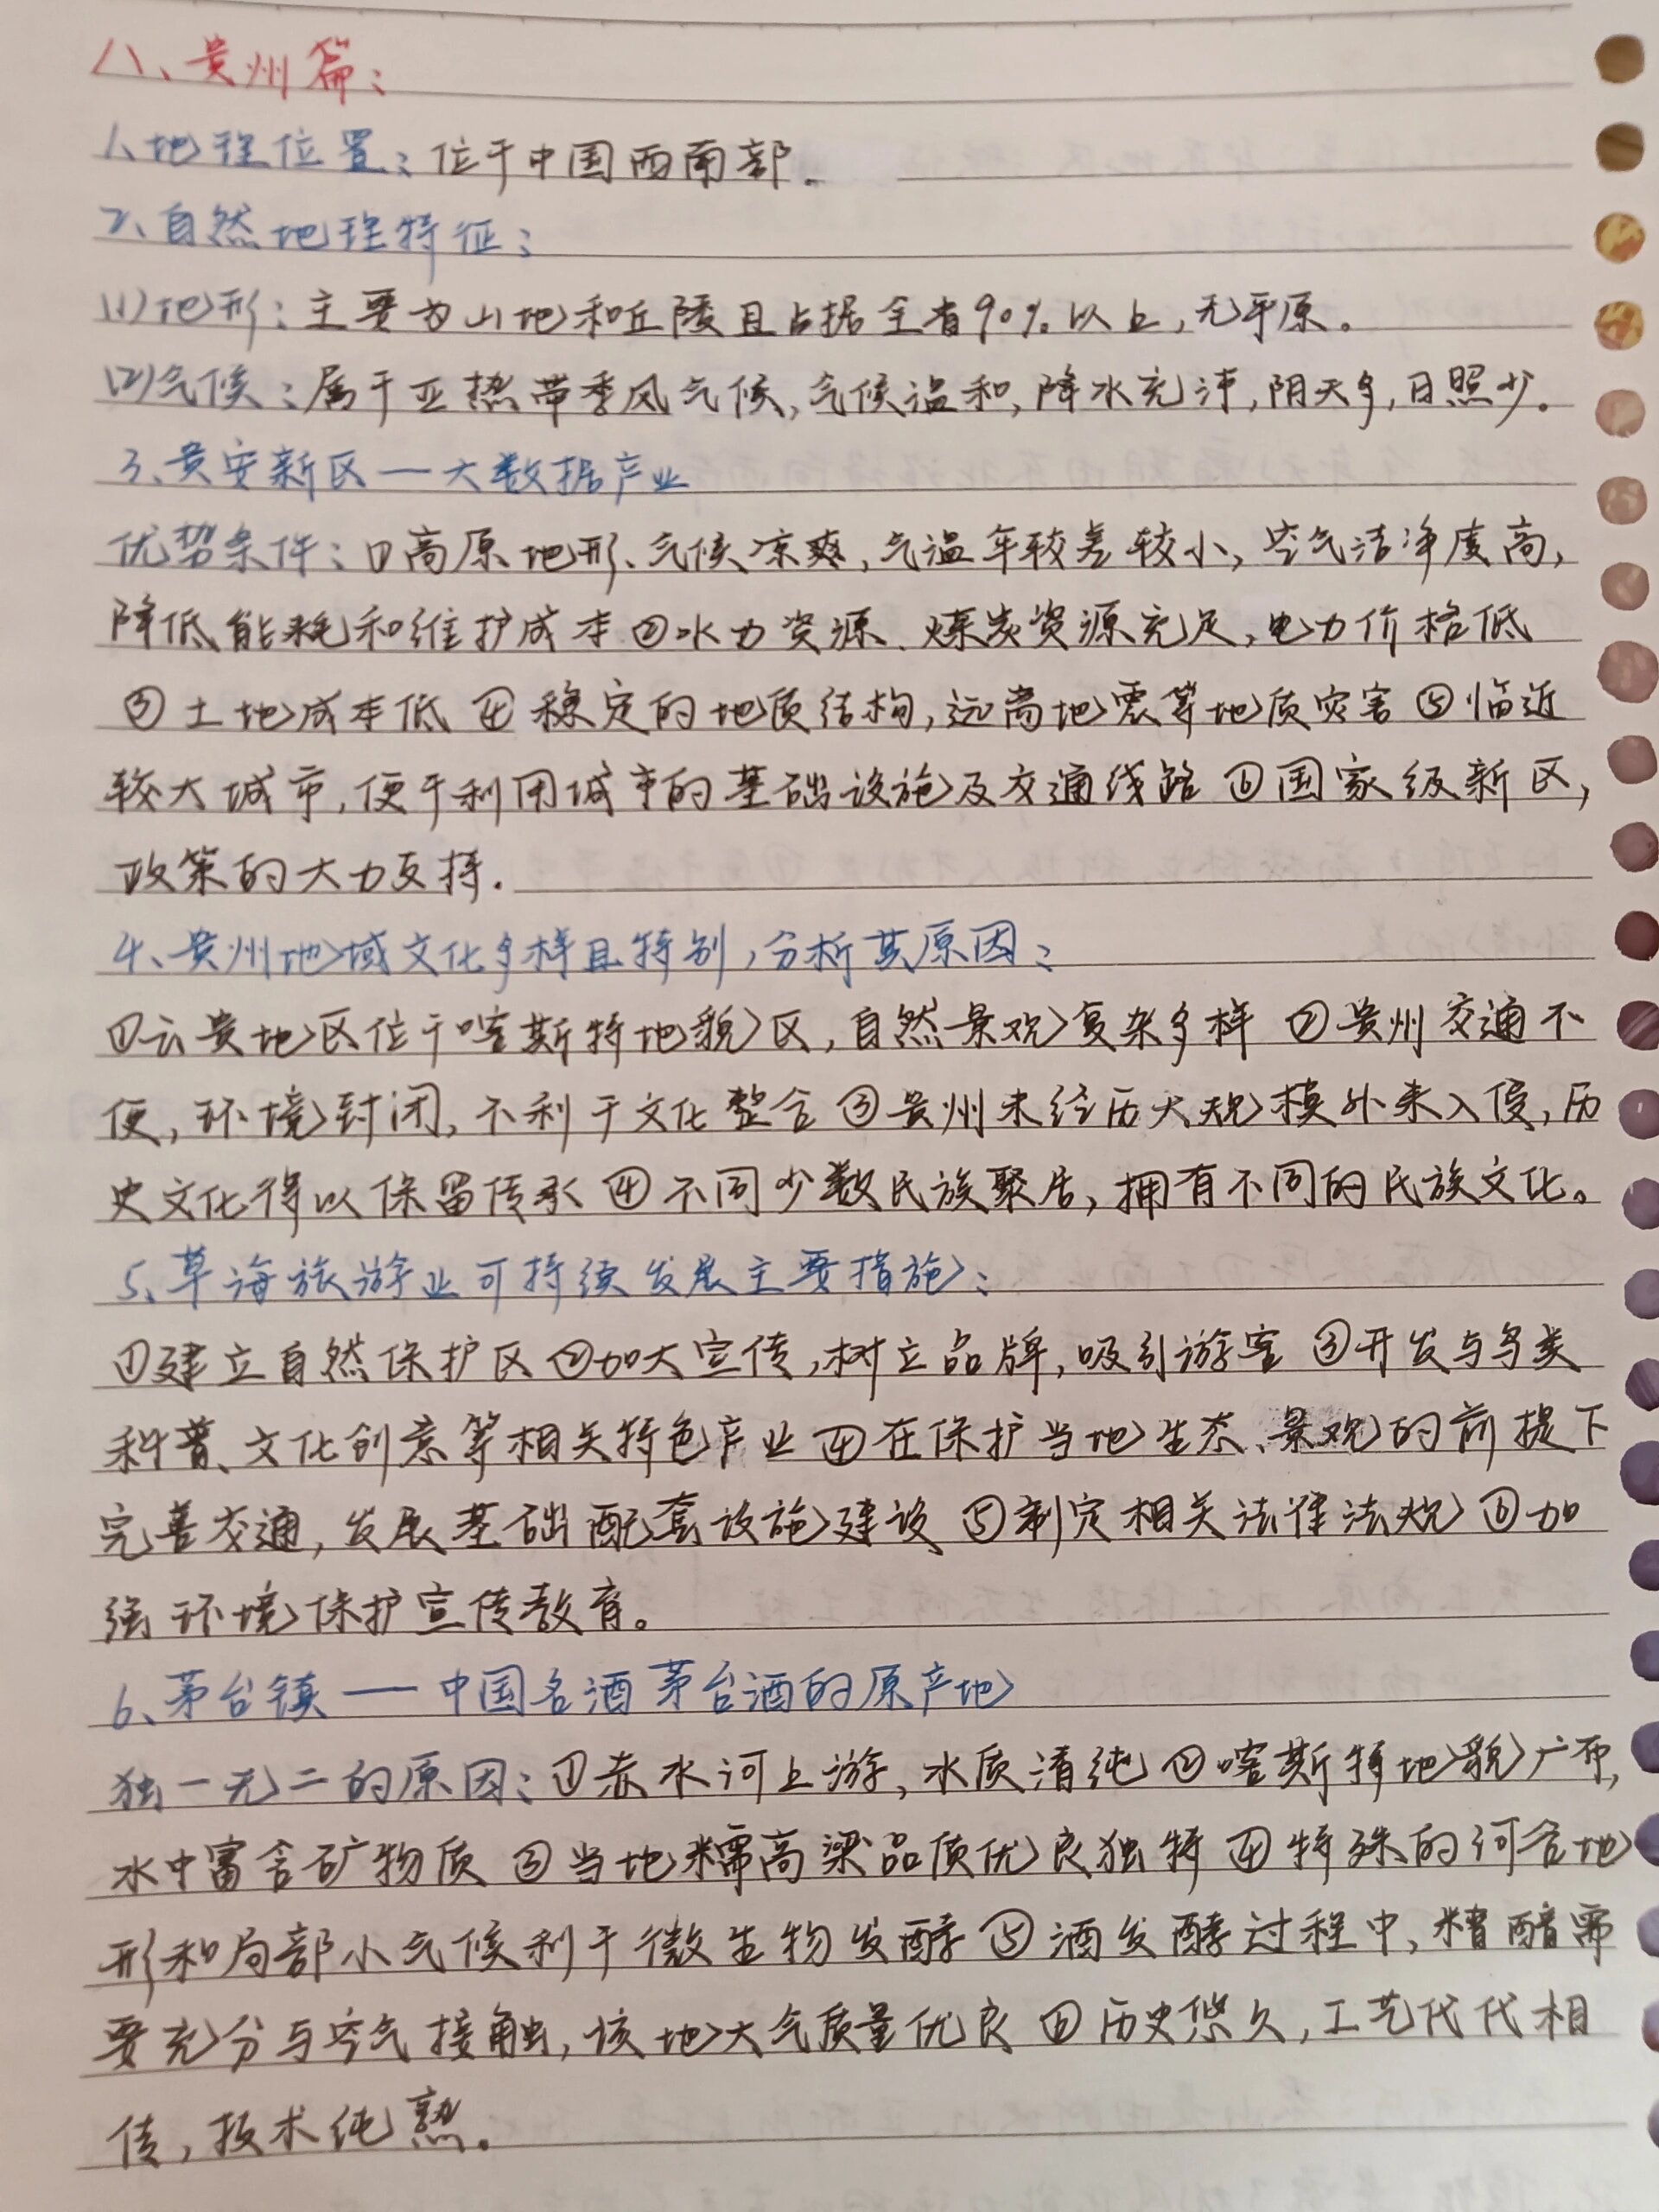 八、贵州篇：
1、地理位置：位于中国西南部。
2、自然地理特征：
(1)地形：主要为山地和丘陵且占据全省90%以上，无平原。
(2)气候：属于亚热带季风气候，气候温和，降水充沛，阴天多，日照少。
3、贵安新区——大数据产业
优势条件：①高原地形、气候凉爽，气温年较差较小，空气洁净度高，
降低能耗和维护成本②水力资源、煤炭资源充足，电力价格低
③土地成本低④稳定的地质结构，远离地震等地质灾害⑤临近
较大城市，便于利用城市的基础设施及交通线路⑥国家级新区，
政策的大力支持.
4、贵州地域文化多样且特别，分析其原因：
①云贵地区位于喀斯特地貌区，自然景观复杂多样②贵州交通不
便，环境封闭，不利于文化整合③贵州未经历大规模外来入侵，历
史文化得以保留传承④不同少数民族聚居，拥有不同的民族文化。
5、草海旅游业可持续发展主要措施：
①建立自然保护区②加大宣传，树立品牌，吸引游客③开发与鸟类
科普、文化创意等相关特色产业④在保护当地生态、景观的前提下
完善交通，发展基础配套设施建设⑤制定相关法律法规⑥加
强环境保护宣传教育。
6、茅台镇——中国名酒茅台酒的原产地
独一无二的原因：①赤水河上游，水质清纯②喀斯特地貌广布，
水中富含矿物质③当地糯高粱品质优良独特④特殊的河谷地
形和局部小气候利于微生物发酵⑤酒发酵过程中，糟醅需
要充分与空气接触，该地大气质量优良⑥历史悠久，工艺代代相
传，技术纯熟。